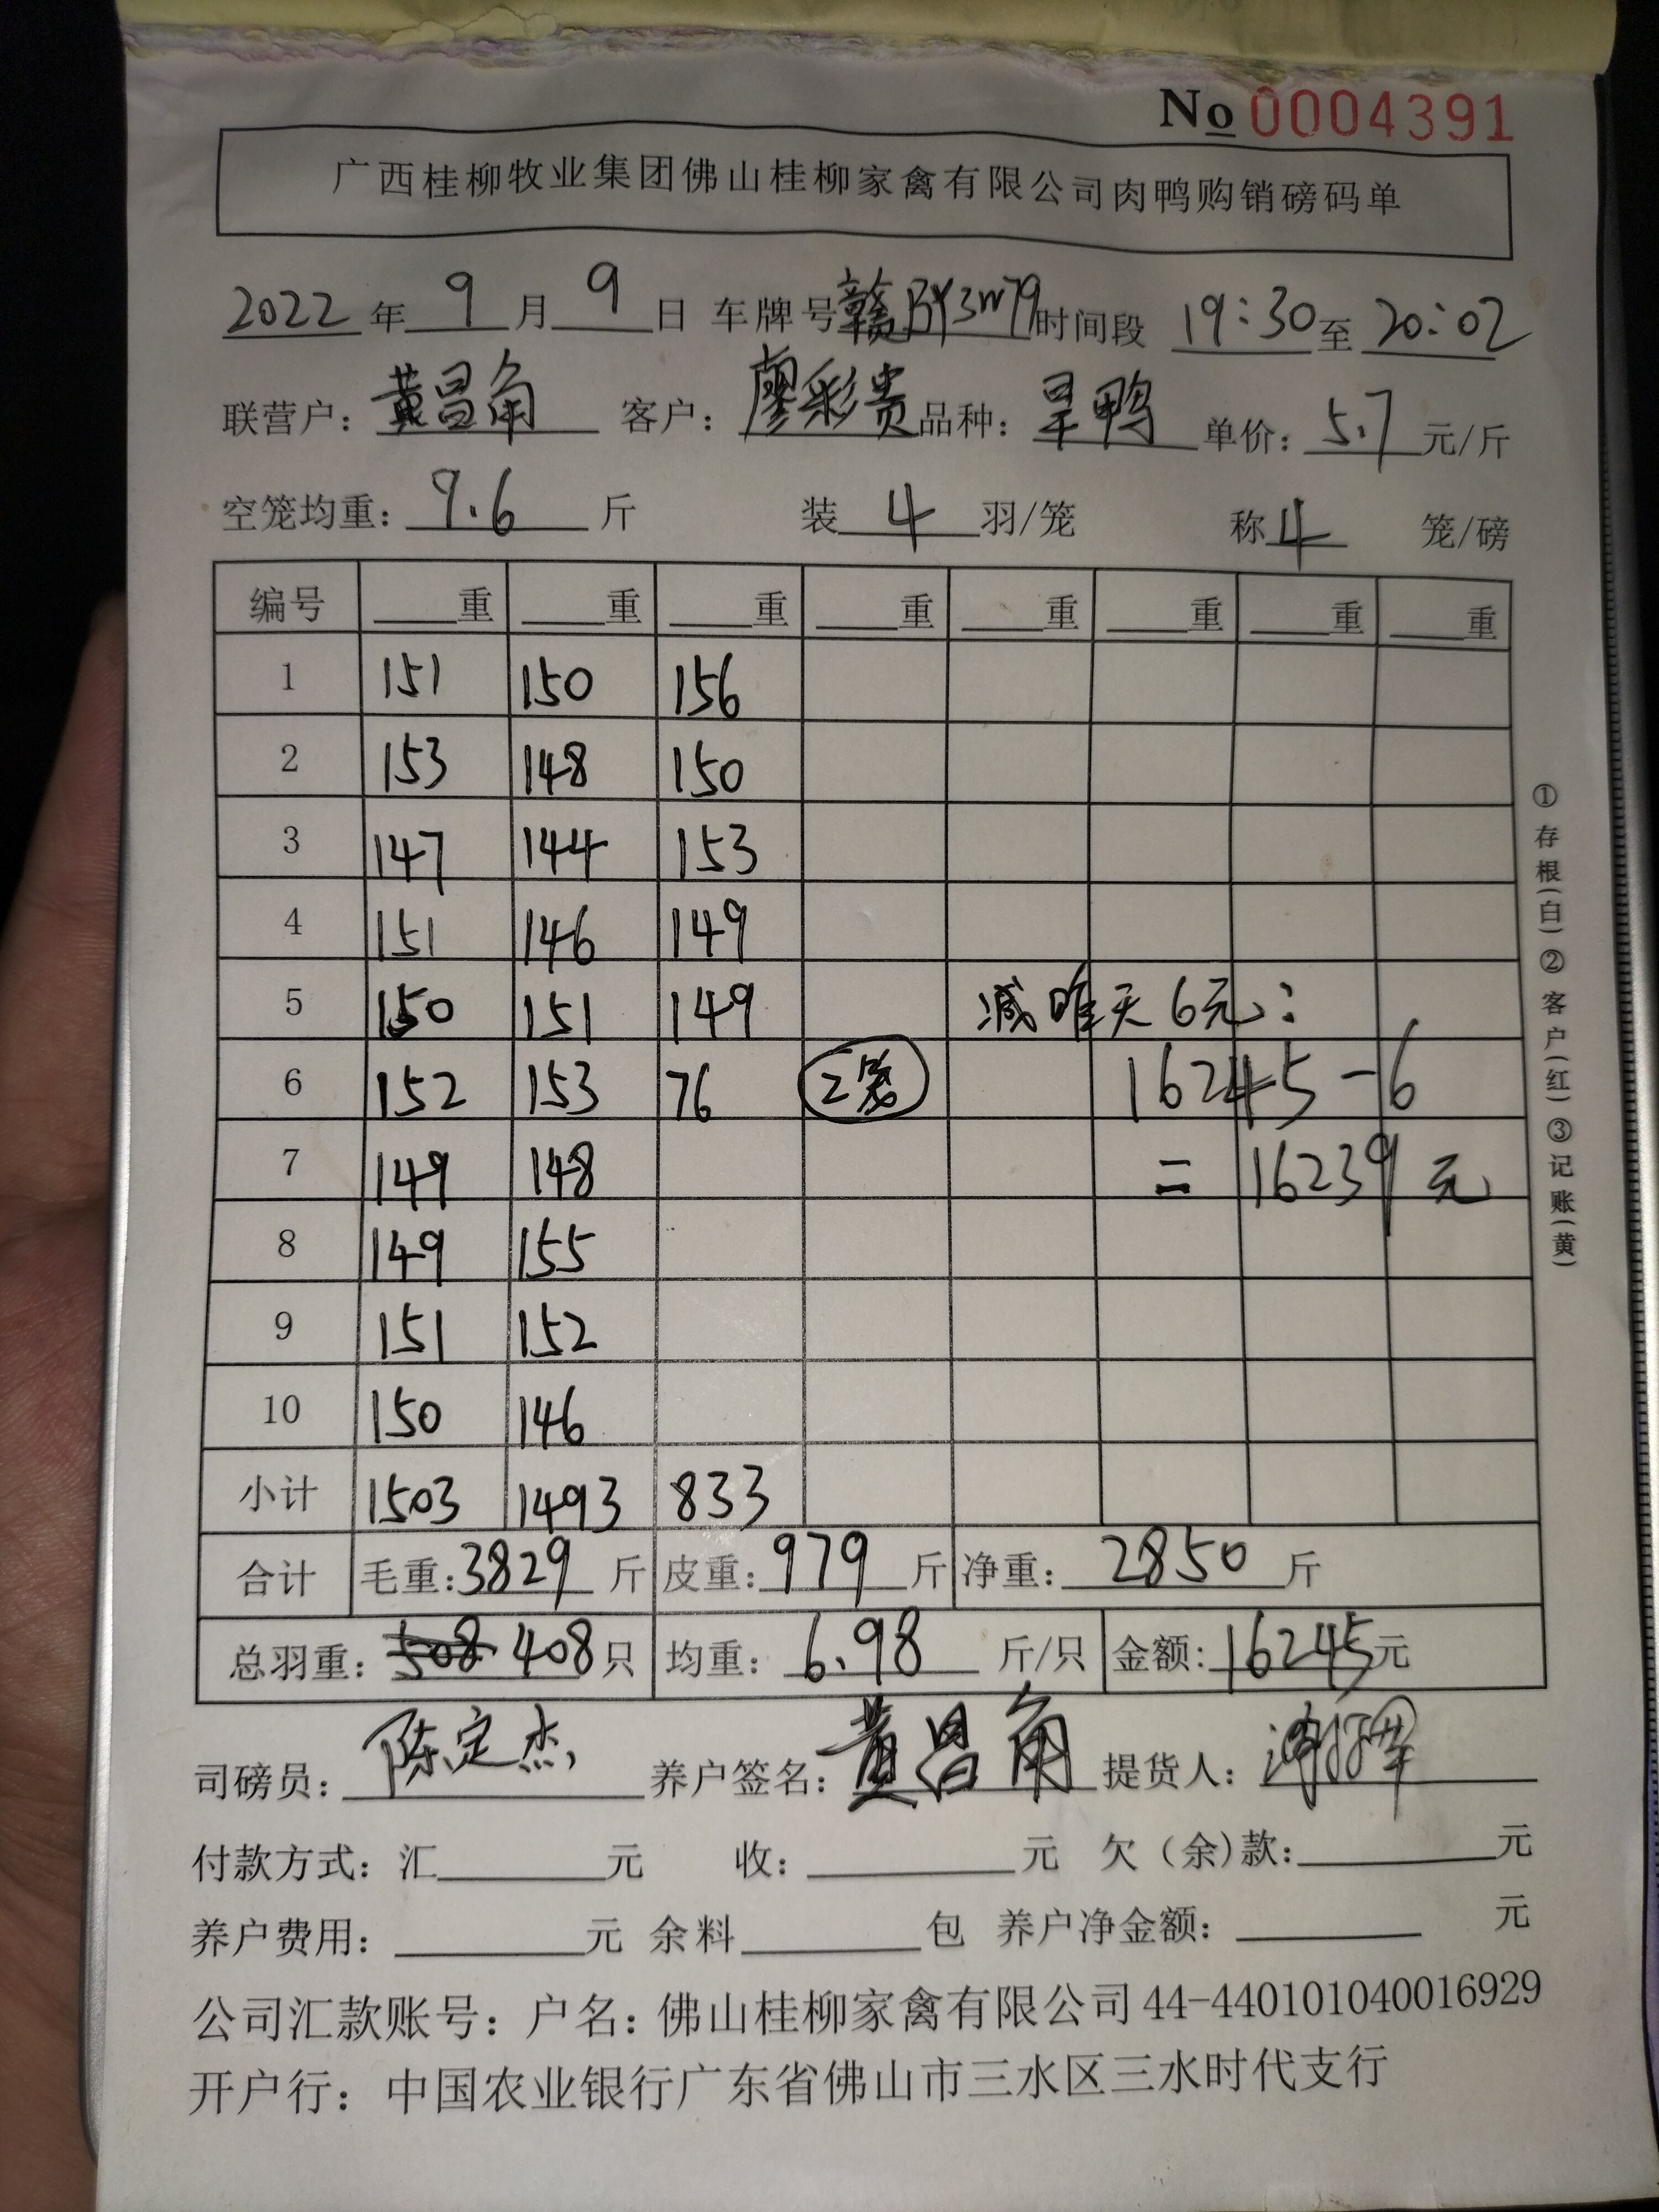 No 0004391
广西桂柳牧业集团佛山桂柳家禽有限公司肉鸭购销磅码单
2022年 9月 9日 车牌号 赣BY3W79 时间段 19:30至20:02
联营户：黄昌角 客户：廖彩贵 品种：旱鸭 单价：5.7元/斤
空笼均重：9.6斤 装 4 羽/笼 称 4 笼/磅
编号 重 重 重 重 重 重 重 重
1 151 150 156
2 153 148 150
3 147 144 153
4 151 146 149
5 150 151 149 减昨天6元：
6 152 153 76 2笼 16245-6
7 149 148 =16239元
8 149 155
9 151 152
10 150 146
小计 1503 1493 833
合计 毛重：3829斤 皮重：979斤 净重：2850斤
总羽重：508 408只 均重：6.98斤/只 金额：16245元
司磅员：陈定杰 养户签名：黄昌角 提货人：
付款方式：汇 元 收： 元 欠（余)款： 元
养户费用： 元 余料 包 养户净金额： 元
公司汇款账号：户名：佛山桂柳家禽有限公司 44-440101040016929
开户行：中国农业银行广东省佛山市三水区三水时代支行
①存根(白)②客户(红)③记账(黄)